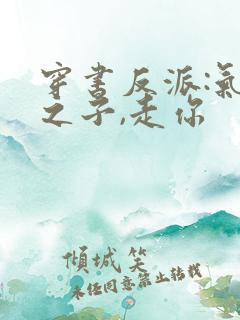 穿书反派:氣
之子,走你
倾城笑
未经同意禁止转载